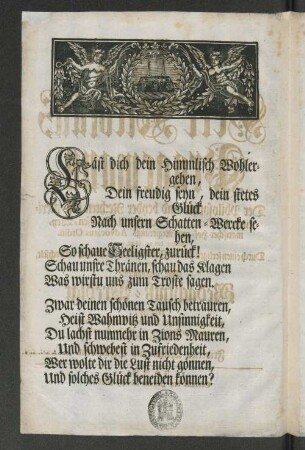 Läst dich dein Himmlisch Wohler-
gehen,
Dein freudig seyn, dein stetes
Glück
Nach unsern Schatten-Wercke se-
hen,
So schaue Seeligster, zurück!
Schau unsre Thränen, schau das Klagen
Was wirstu uns zum Troste sagen.
Zwar deinen schönen Tausch betrauren,
Heist Wahnwitz und Unsinnigkeit,
Du lachst nunmehr in Zions Mauren,
Und schwebest in Zufriedenheit,
Wer wolte dir die Lust nicht gönnen,
Und solches Glück beneiden können?